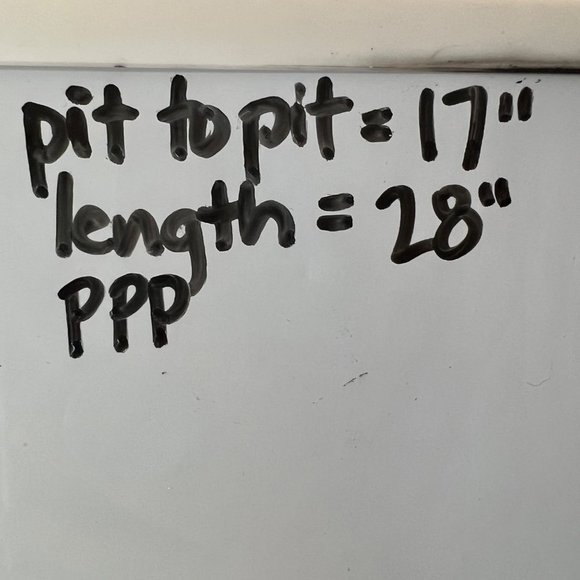 pit to pit = 17"
length = 28"
PPP